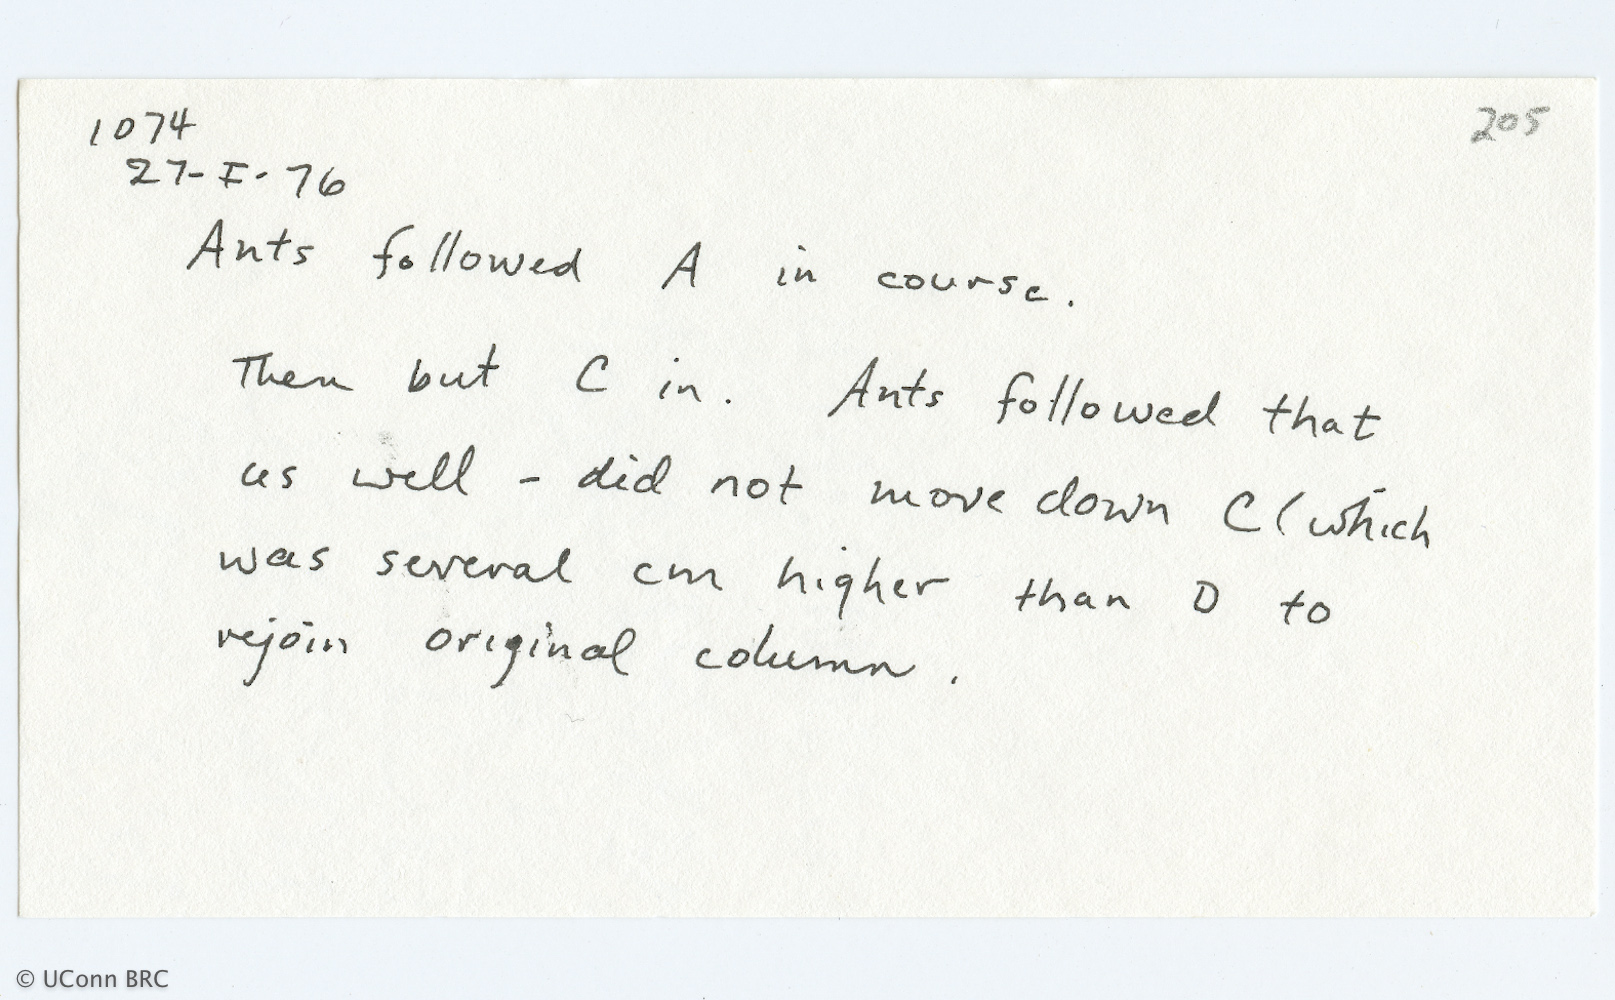 1074
205
27-I-76
Ants followed A in course.
Then but C in. Ants followed that
as well - did not move down C (which
was several cm higher than D to
rejoin original column.
© UConn BRC